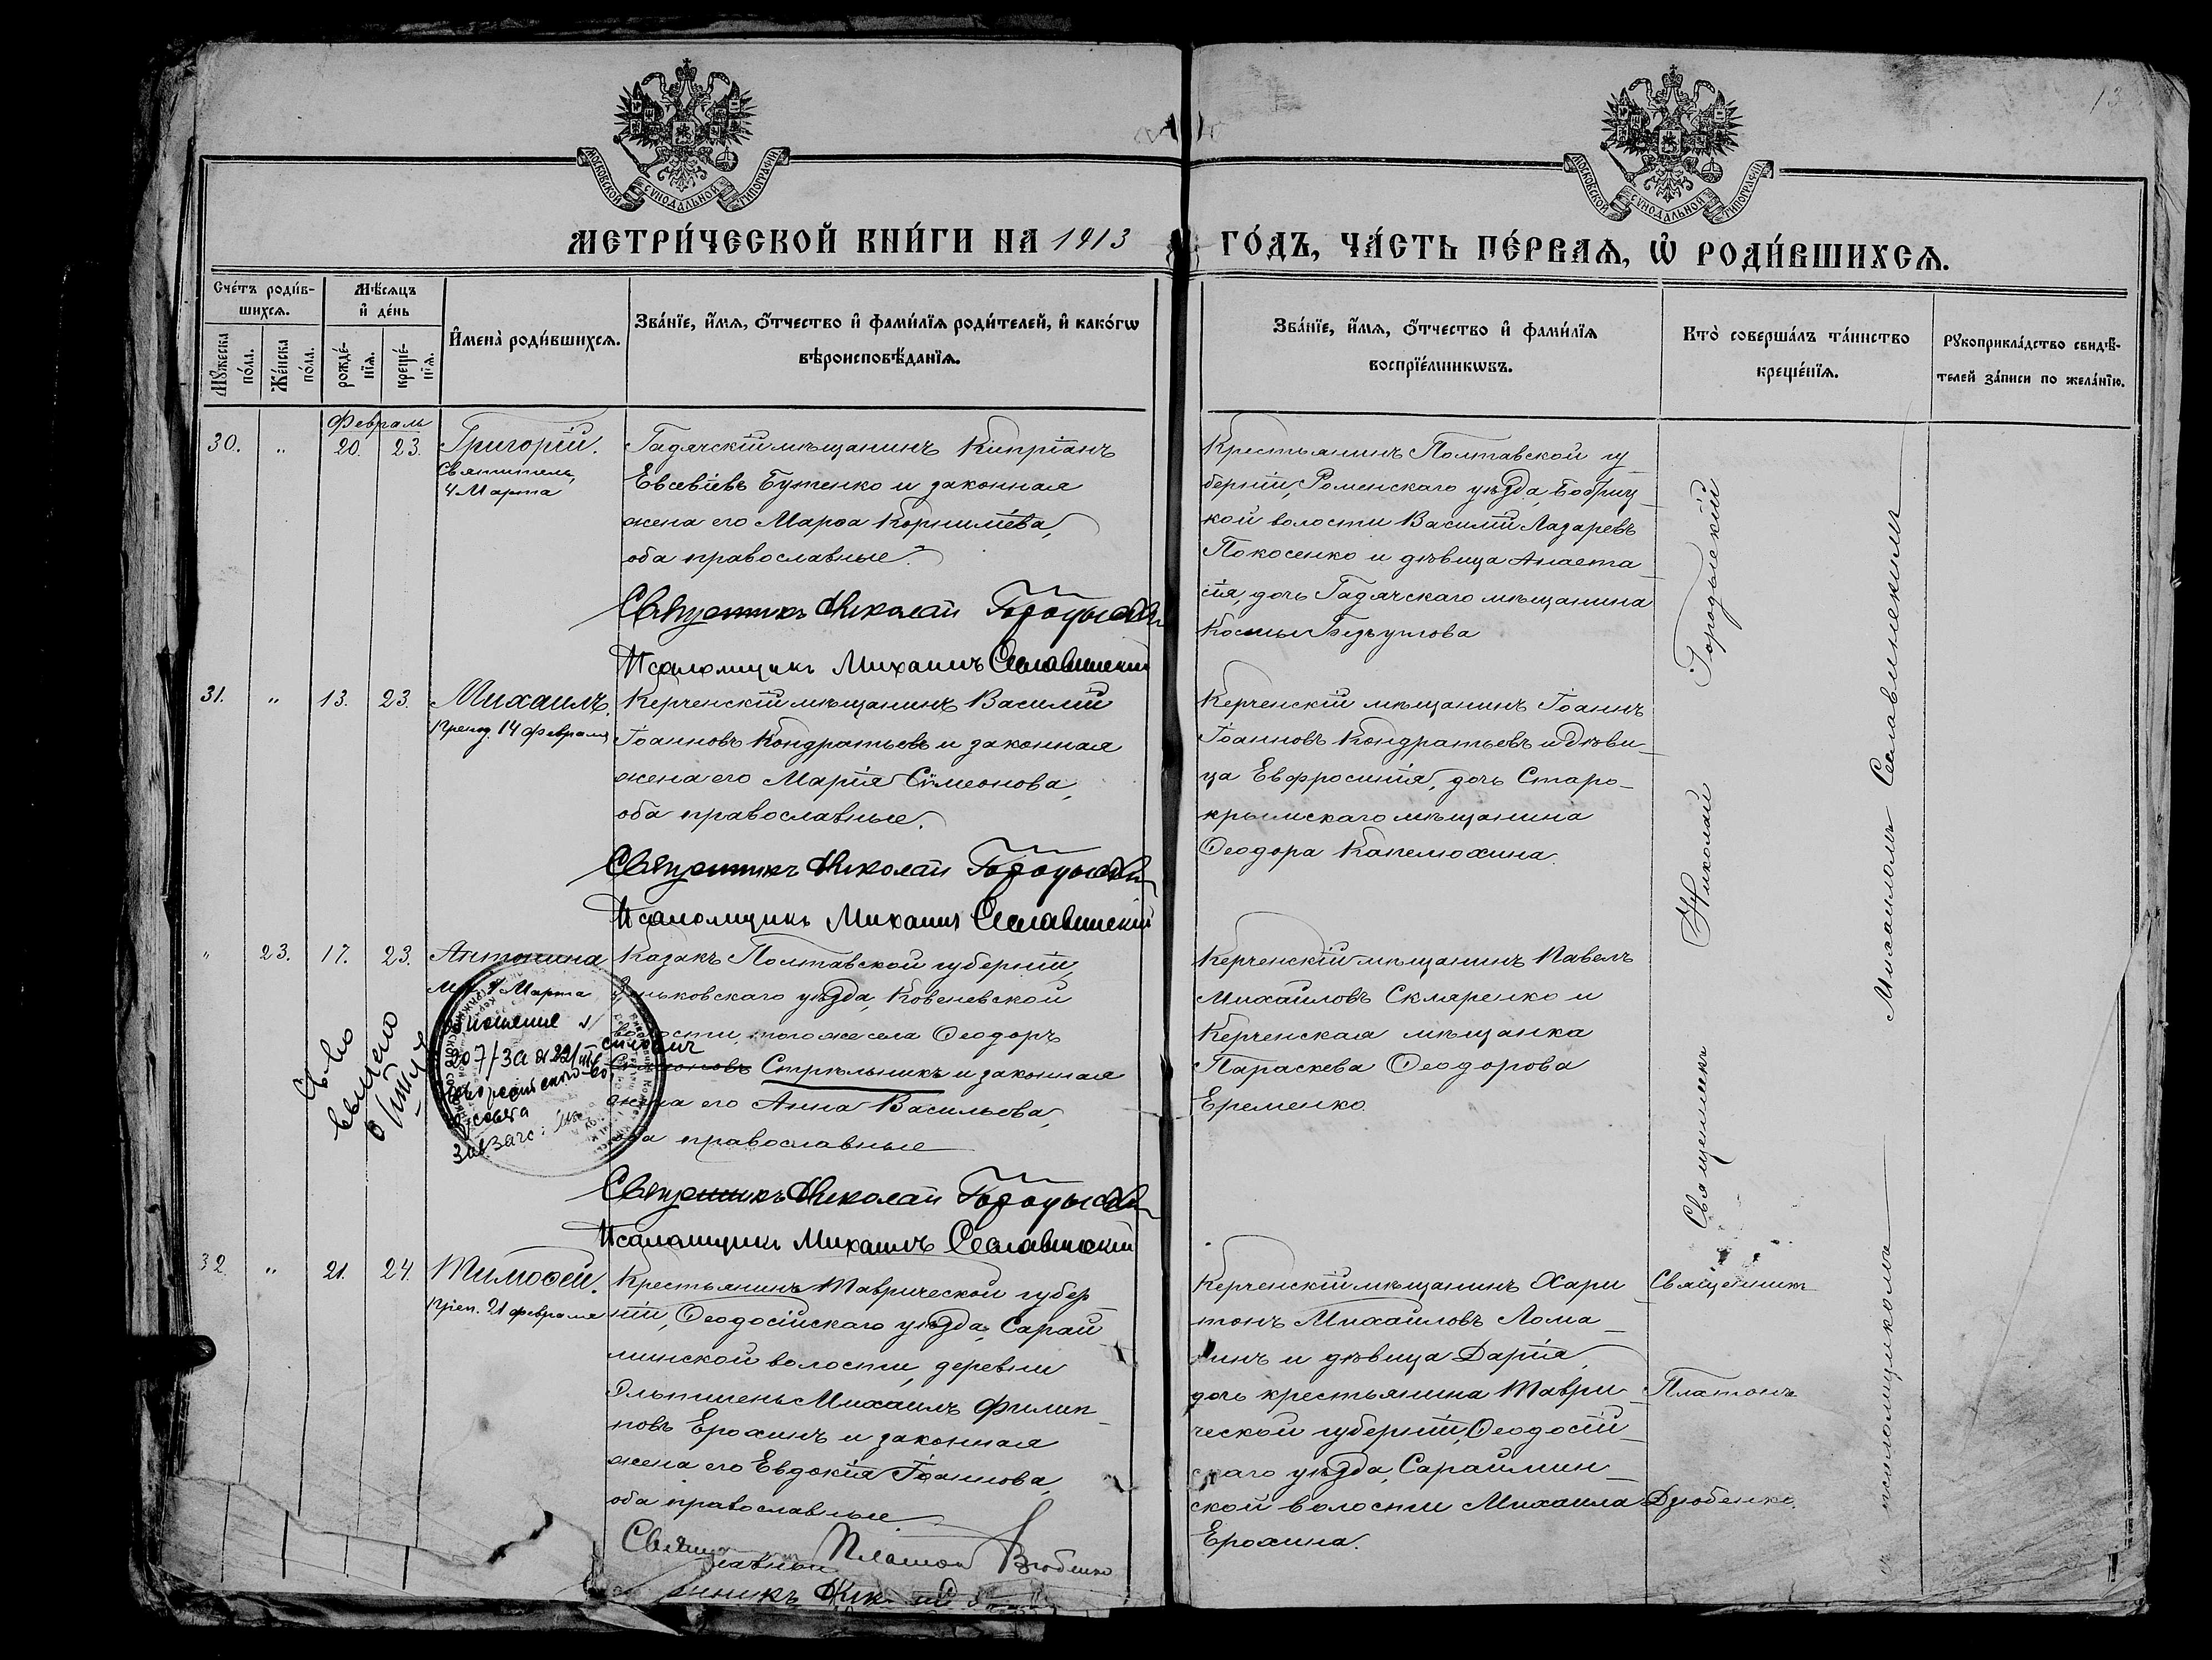 13
МОСКОВСКОЙ СѴНОДАЛЬНОЙ ТИПОГРАФІИ
МОСКОВСКОЙ СѴНОДАЛЬНОЙ ТИПОГРАФІИ
МЕТРИ́ЧЕСКОЙ КНИ́ГИ НА 1913 ГО́ДЪ, ЧА́СТЬ ПЕ́РВАѦ, Ѡ҆ РОДИ́ВШИХСѦ.
Сче́тъ роди́в-
шихсѧ.
Мѣ́сѧцъ
и҆ де́нь
Мꙋ́жеска
по́ла.
Же́нска
по́ла.
рожде́-
нїѧ.
креще́-
нїѧ.
И҆мена̀ роди́вшихсѧ.
Зва́нїе, и҆́мѧ, ѻ҆́тчество и҆ фами́лїѧ роди́телей, и҆ како́гѡ
вѣроисповѣ́данїѧ.
Зва́нїе, и҆́мѧ, ѻ҆́тчество и҆ фами́лїѧ
воспрїе́мникѡвъ.
Кто̀ соверша́лъ та́инство
креще́нїѧ.
Рꙋкоприкла́дство свидѣ́-
телей за́писи по жела́нїю.
Февраль
30. „ 20. 23. Григорій.
Святитель,
4 Марта
Гадячскій мѣщанинъ Кипріанъ
Евсевіевъ Бутенко и законная
жена его Марѳа Корниліева,
оба православные.
Священникъ Николай Городыскій
Псаломщикъ Михаилъ Селавинскій
Крестьянинъ Полтавской гу_
берніи, Роменскаго уѣзда, Бобриц_
кой волости Василій Лазаревъ
Покосенко и дѣвица Анаста_
сія, дочь Гадячскаго мѣщанина
Космы
31. „ 13. 23. Михаилъ.
Препод. 14 февраля
Керченскій мѣщанинъ Василій
Іоанновъ Кондратьевъ и законная
жена его Марія Сѵмеонова,
оба православные.
Священникъ Николай Городыскій
Псаломщикъ Михаилъ Селавинскій
Керченскій мѣщанинъ Іоаннъ
Іоанновъ Кондратьевъ и дѣви_
ца Евфросинія, дочь Старо_
крымскаго мѣщанина
Ѳеодора Капелюхина.
„ 23. 17. 23. Антонина
1 Марта
Казакъ Полтавской губерніи,
Зѣньковскаго уѣзда, Ковелевской
волости, того же села Ѳеодоръ
Стрѣльникъ и законная
жена его Анна Васильева,
оба православные
Священникъ Николай Городыскій
Псаломщикъ Михаилъ Селавинскій
207/3а
совета
Керченскій мѣщанинъ Павелъ
Михаиловъ Скляренко и
Керченская мѣщанка
Параскева Ѳеодорова
Еременко.
32. „ 21. 24. Тимоѳей.
Преп. 21 февраля
Крестьянинъ Таврической губер_
ніи, Ѳеодосійскаго уѣзда, Сарай_
минской волости, деревни
Михаилъ Филип_
повъ Ерохинъ и законная
жена его Евдокія Іоаннова,
оба православные.
Платон Дзюбенко
Керченскій мѣщанинъ Хари_
тонъ Михаиловъ Лома_
кинъ и дѣвица Дарія,
дочь крестьянина Таври_
ческой губерніи, Ѳеодосій_
скаго уѣзда, Сараймин_
ской волости Михаила
Ерохина.
Священникъ Николай Городыскій
Священникъ
Платонъ
Дзюбенко.
съ псаломщикомъ Михаиломъ Селавинскимъ